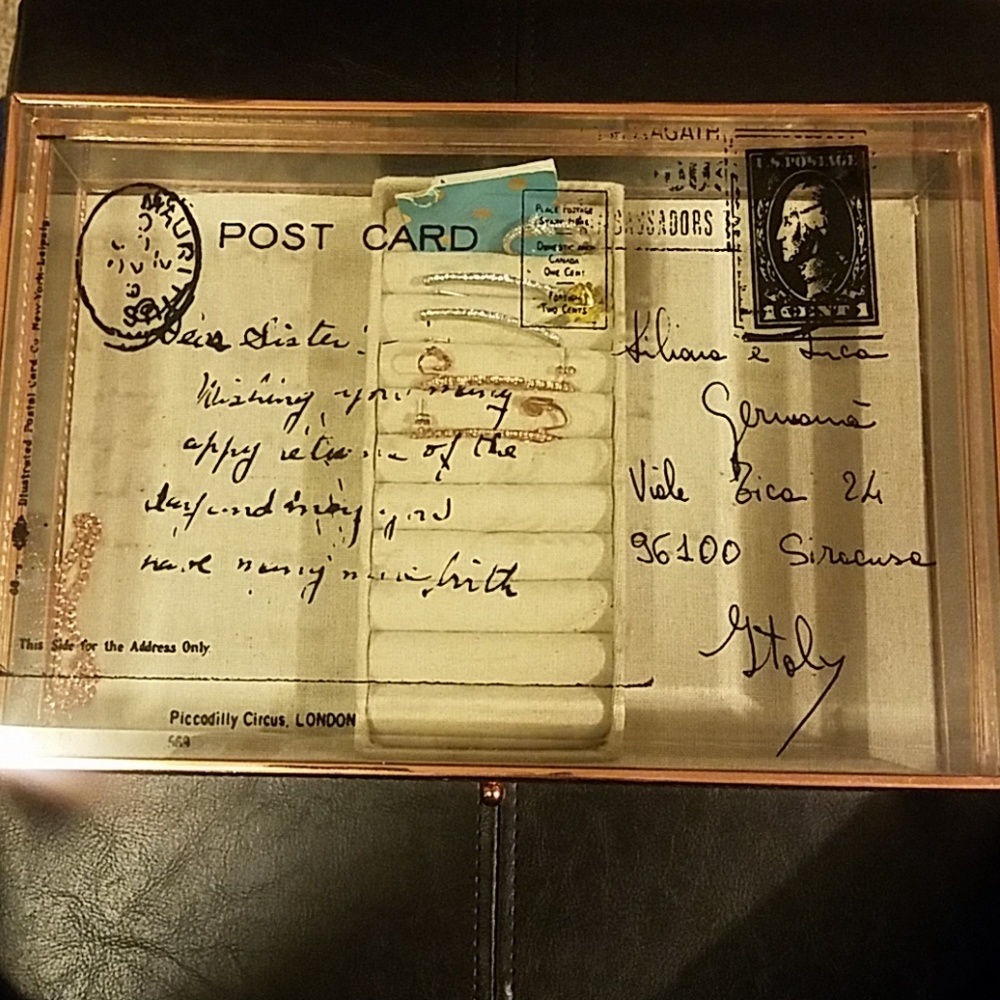 AGATH
AMBASSADORS
U.S. POSTAGE
MAURITIUS
POST CARD
PLACE POSTAGE
STAMP HERE
DOMESTIC AND
CANADA
ONE CENT
FOREIGN
TWO CENTS
CENTS
Dear Sister:
Wishing you many
appy returns of the
day and may you
have many more birth
Liliana e Luca
Germanà
Viale Zica 24
96100 Siracusa
Italy
Illustrated Postal Card Co. New-York-Leipzig
This Side for the Address Only
Piccodilly Circus, LONDON
569